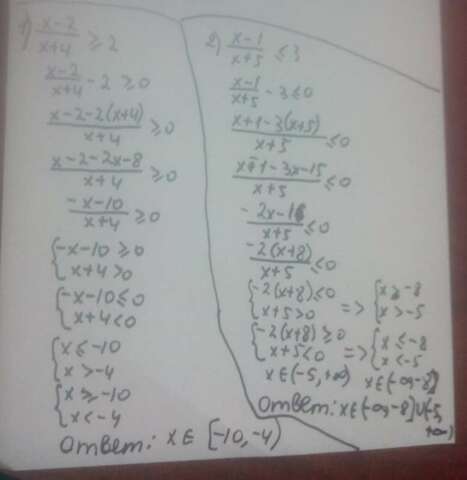 1) x-2/x+4 ≥ 2
x-2/x+4 - 2 ≥ 0
x-2-2(x+4)/x+4 ≥ 0
x-2-2x-8/x+4 ≥ 0
-x-10/x+4 ≥ 0
{-x-10 ≥ 0
x+4>0
{-x-10 ≤ 0
x+4<0
{x ≤ -10
x > -4
{x ≥ -10
x < -4
Ответ: x∈ [-10,-4)
2) x-1/x+5 ≤ 3
x-1/x+5 - 3 ≤ 0
x+1-3(x+5)/x+5 ≤ 0
x-1-3x-15/x+5 ≤ 0
-2x-16/x+5 ≤ 0
-2(x+8)/x+5 ≤ 0
{-2(x+8) ≤ 0 => {x ≥ -8
x+5>0 x > -5
{-2(x+8) ≥ 0 => {x ≤ -8
x+5<0 x < -5
x∈(-5,+∞) x∈(-∞,-8]
Ответ: x∈(-∞,-8]∪(-5,
+∞)